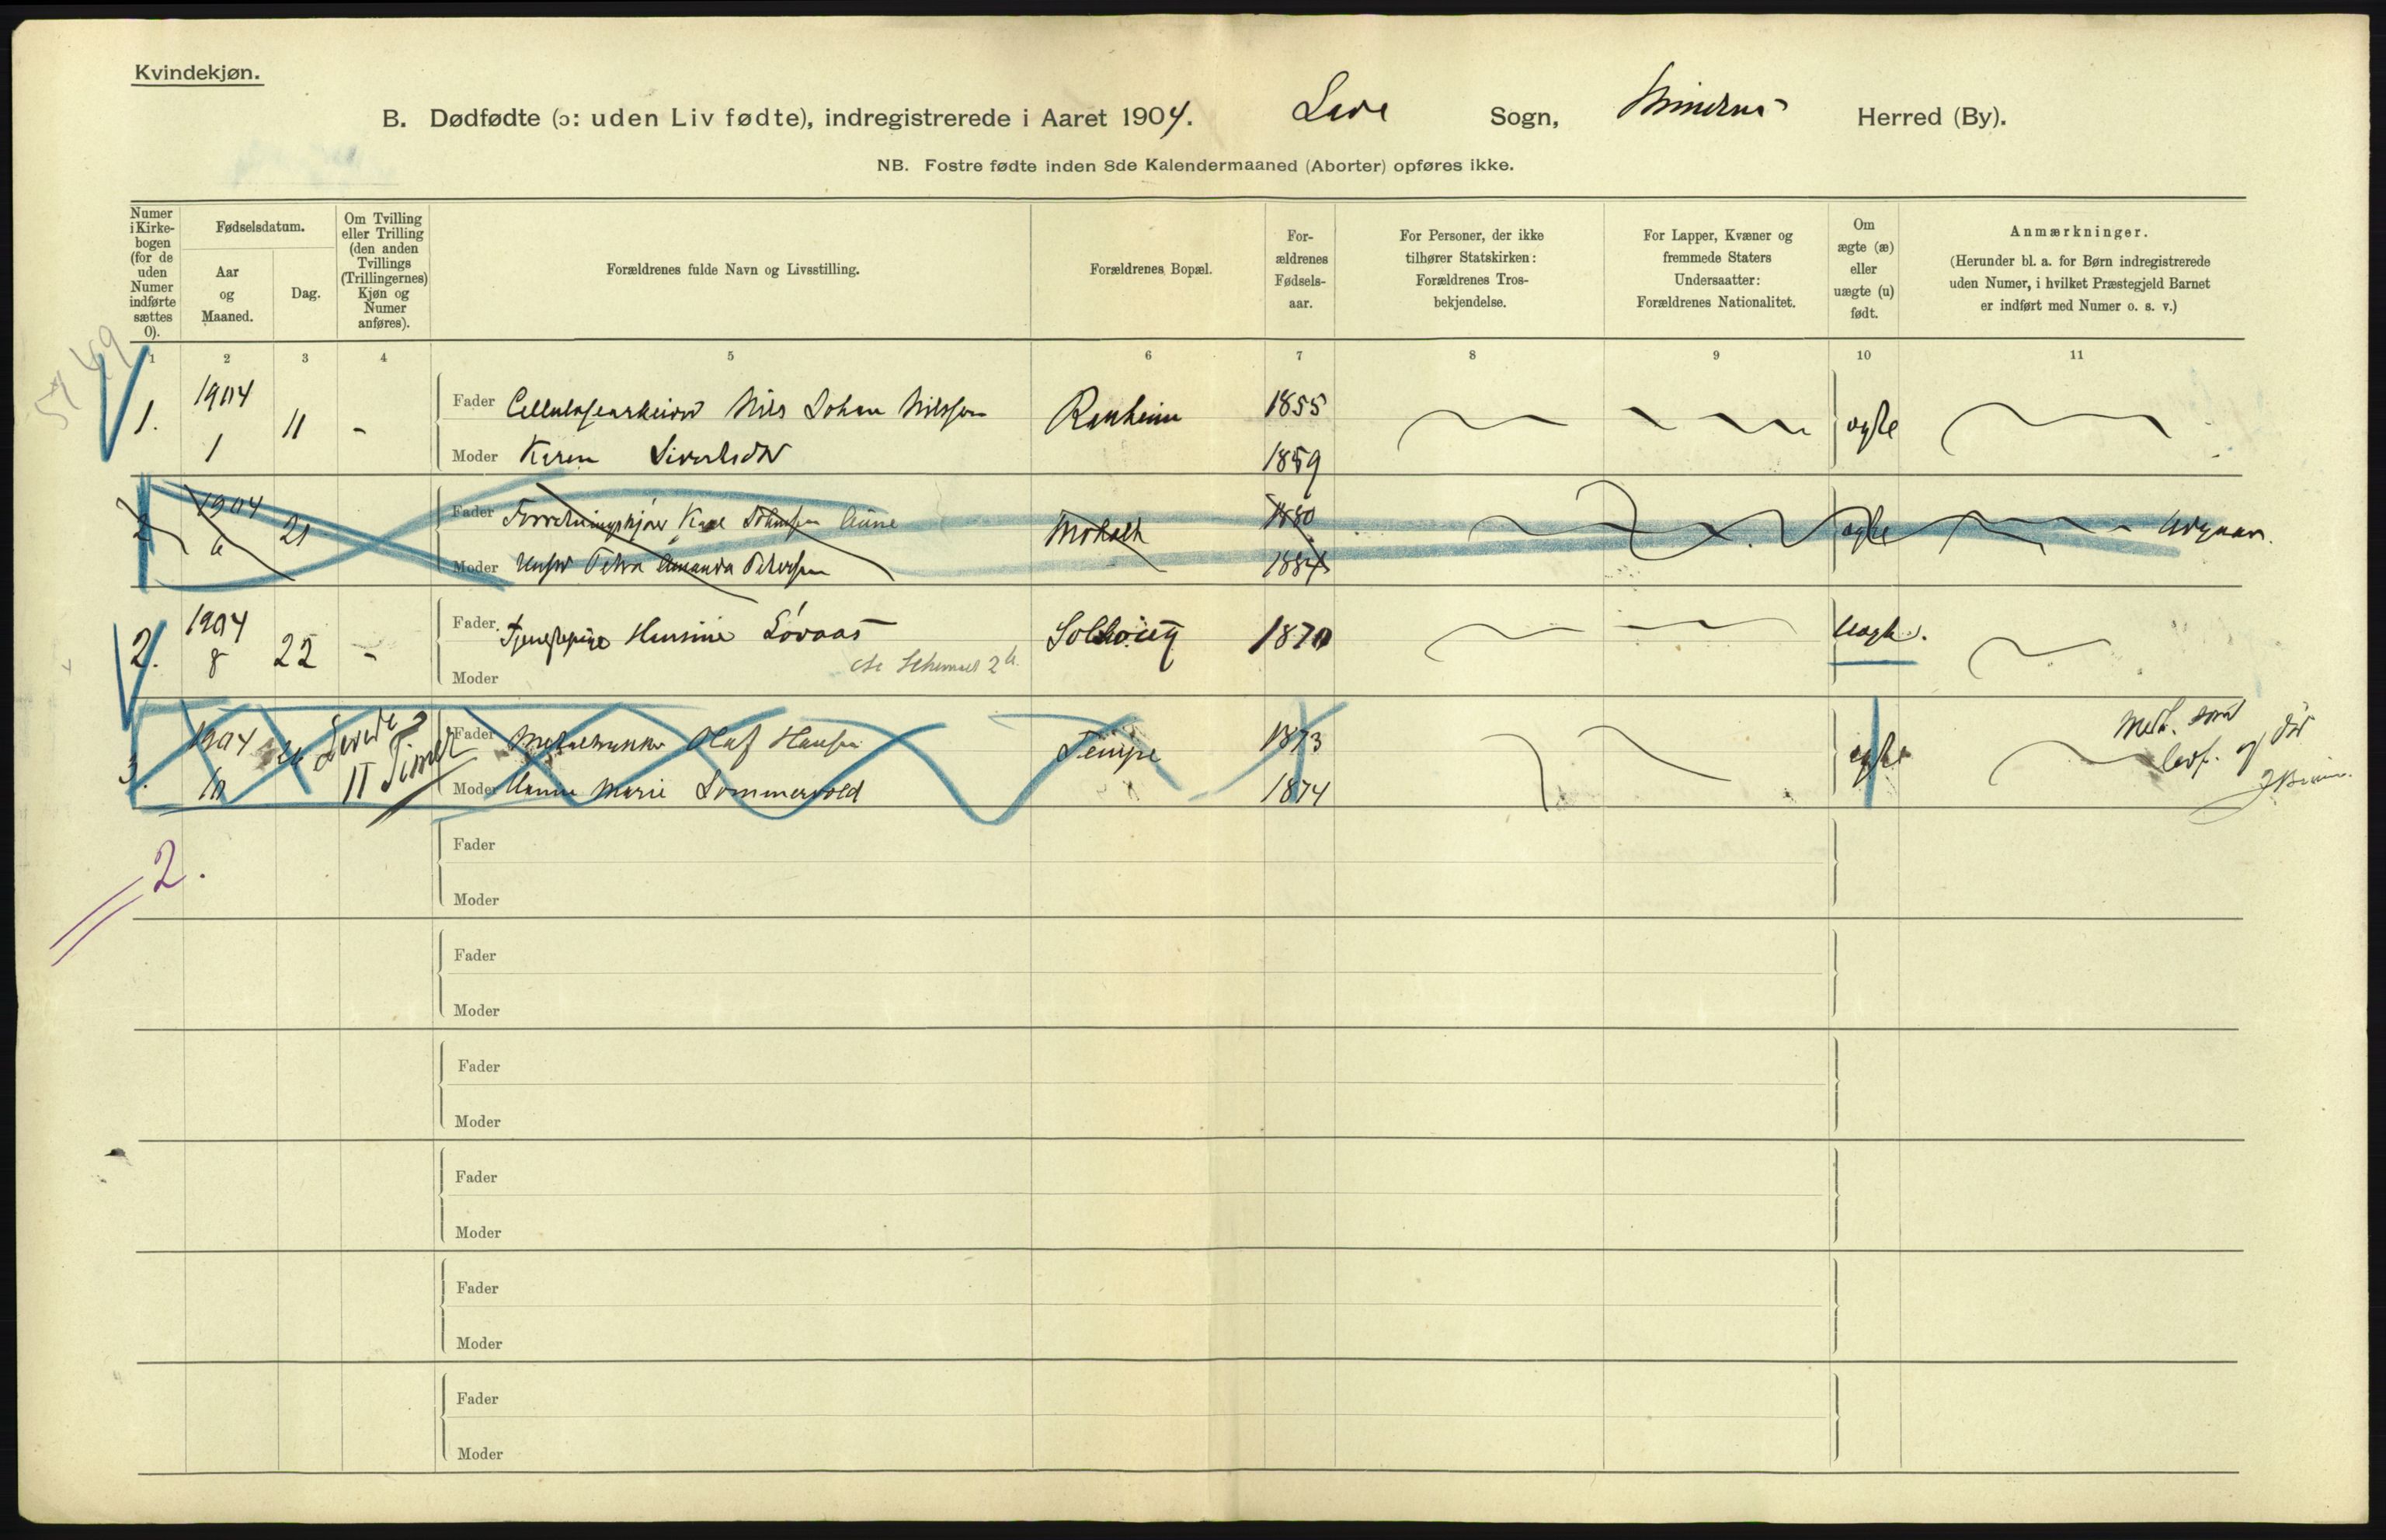 Kvindekjøn.
B. Dødfødte (ɔ: uden Liv fødte), indregistrerede i Aaret 1904. Lade Sogn, Herred (By).
NB. Fostre fødte inden 8de Kalendermaaned (Aborter) opføres ikke.
Numer i Kirkebogen (for de uden Numer indførte sættes 0).
Fødselsdatum.
Aar og Maaned.
Dag.
Om Tvilling eller Trilling (den anden Tvillings (Trillingernes) Kjøn og Numer anføres).
Forældrenes fulde Navn og Livsstilling.
Forældrenes Bopæl.
For-ældrenes Fødsels-aar.
For Personer, der ikke tilhører Statskirken: Forældrenes Tros-bekjendelse.
For Lapper, Kvæner og fremmede Staters Undersaatter: Forældrenes Nationalitet.
Om ægte (æ) eller uægte (u) født.
Anmærkninger.
(Herunder bl. a. for Børn indregistrerede uden Numer, i hvilket Præstegjeld Barnet er indført med Numer o. s. v.)
1 2 3 4 5 6 7 8 9 10 11
1. 1904 1 11 -
Fader Nils Johan Nilssen Ranheim 1855 ægte
Moder Karen 1859
2 1904 6 21
Fader Moholt 1880 ægte Udgaar.
Moder Petra Amanda Petersen 1884
2. 1904 8 22 -
Fader Tjenestepige Hansine Løvaas 1870 Uægte.
Moder
3. 1904 10 26 Levede 11 Timer
Fader Olaf Hansen Tempe 1873 ægte
Moder Hanna Marie Sommervold 1874
2.
Fader
Moder
Fader
Moder
Fader
Moder
Fader
Moder
Fader
Moder
Fader
Moder